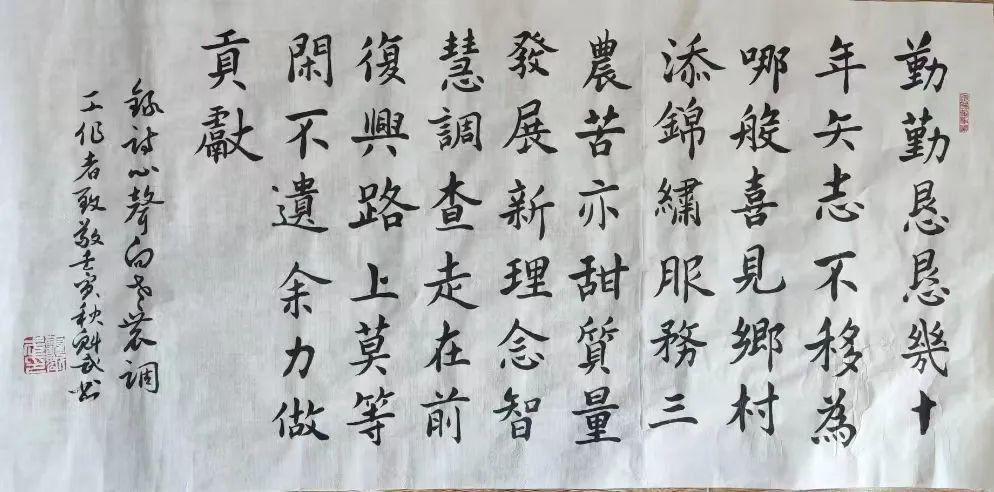 勤勤恳恳幾十
年矢志不移為
哪般喜見鄉村
添錦繡服務三
農苦亦甜質量
發展新理念智
慧調查走在前
復興路上莫等
閑不遺余力做
貢獻
錄詩心聲向老農調
工作者致敬壬寅秋魁武書